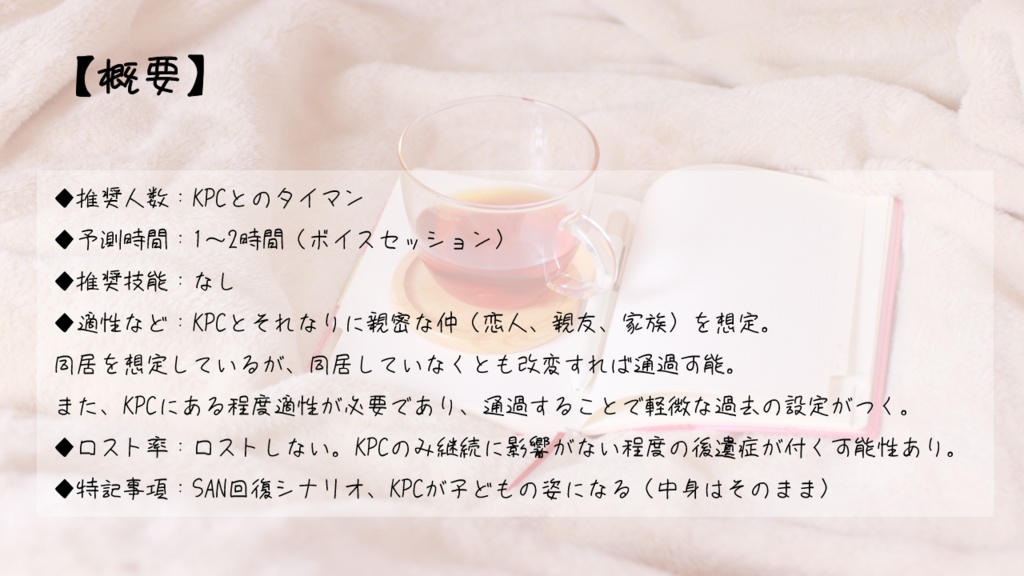 【概要】
◆推奨人数：KPCとのタイマン
◆予測時間：1～2時間（ボイスセッション）
◆推奨技能：なし
◆適性など：KPCとそれなりに親密な仲（恋人、親友、家族）を想定。
同居を想定しているが、同居していなくとも改変すれば通過可能。
また、KPCにある程度適性が必要であり、通過することで軽微な過去の設定がつく。
◆ロスト率：ロストしない。KPCのみ継続に影響がない程度の後遺症が付く可能性あり。
◆特記事項：SAN回復シナリオ、KPCが子どもの姿になる（中身はそのまま）